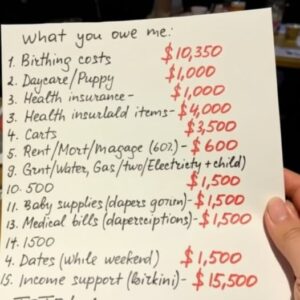 What you owe me:
1. Birthing costs $10,350
2. Daycare/Puppy $1,000
3. Health insurance - $1,000
3. Health insurlald items - $4,000
4. Carts $3,500
5. Rent/Mort/Magage (60%) - $600
9. Grnt/Water, Gas/two/Electriety + child)
10. 500 $1,500
11. Baby supplies (dapers gorum) - $1,500
13. Medical bills (dapersceiptions) - $1,500
14. 1500
4. Dates (While weekend) $1,500
15. Income support (birkini) - $15,500